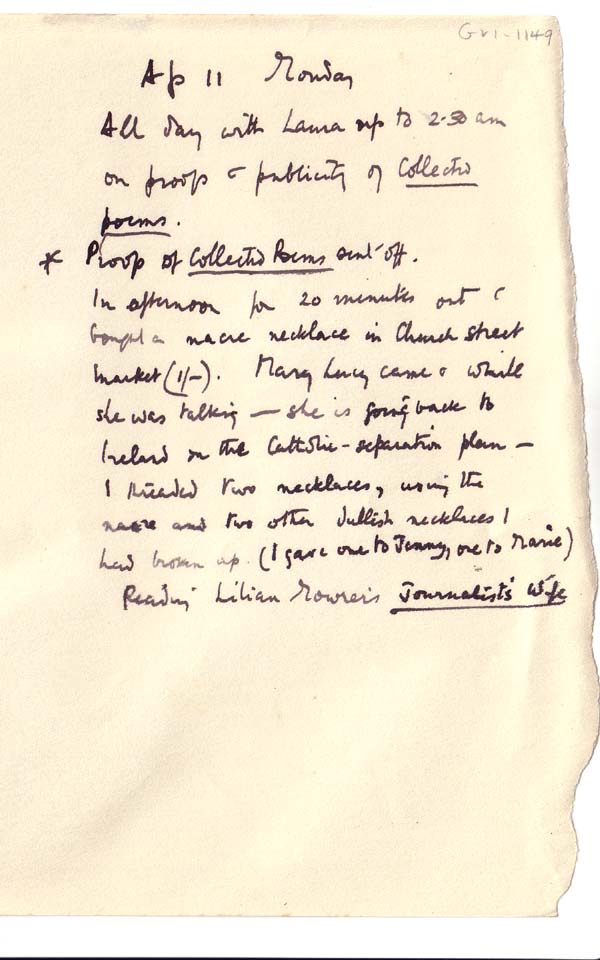 GV1-1149
Ap 11 Monday
All day with Laura up to 2.30 am
on proofs & publicity of Collected
poems.
* Proof of Collected Poems sent off.
In afternoon for 20 minutes out &
bought a nacre necklace in Church street
market (1/-). Mary Lucy came & while
she was talking – she is going back to
Ireland on the Catholic-separation plan –
I threaded two necklaces, using the
nacre and two other dullish necklaces I
had broken up. (I gave one to Jenny, one to Marie)
Reading Lilian Mowrer's Journalist's Wife